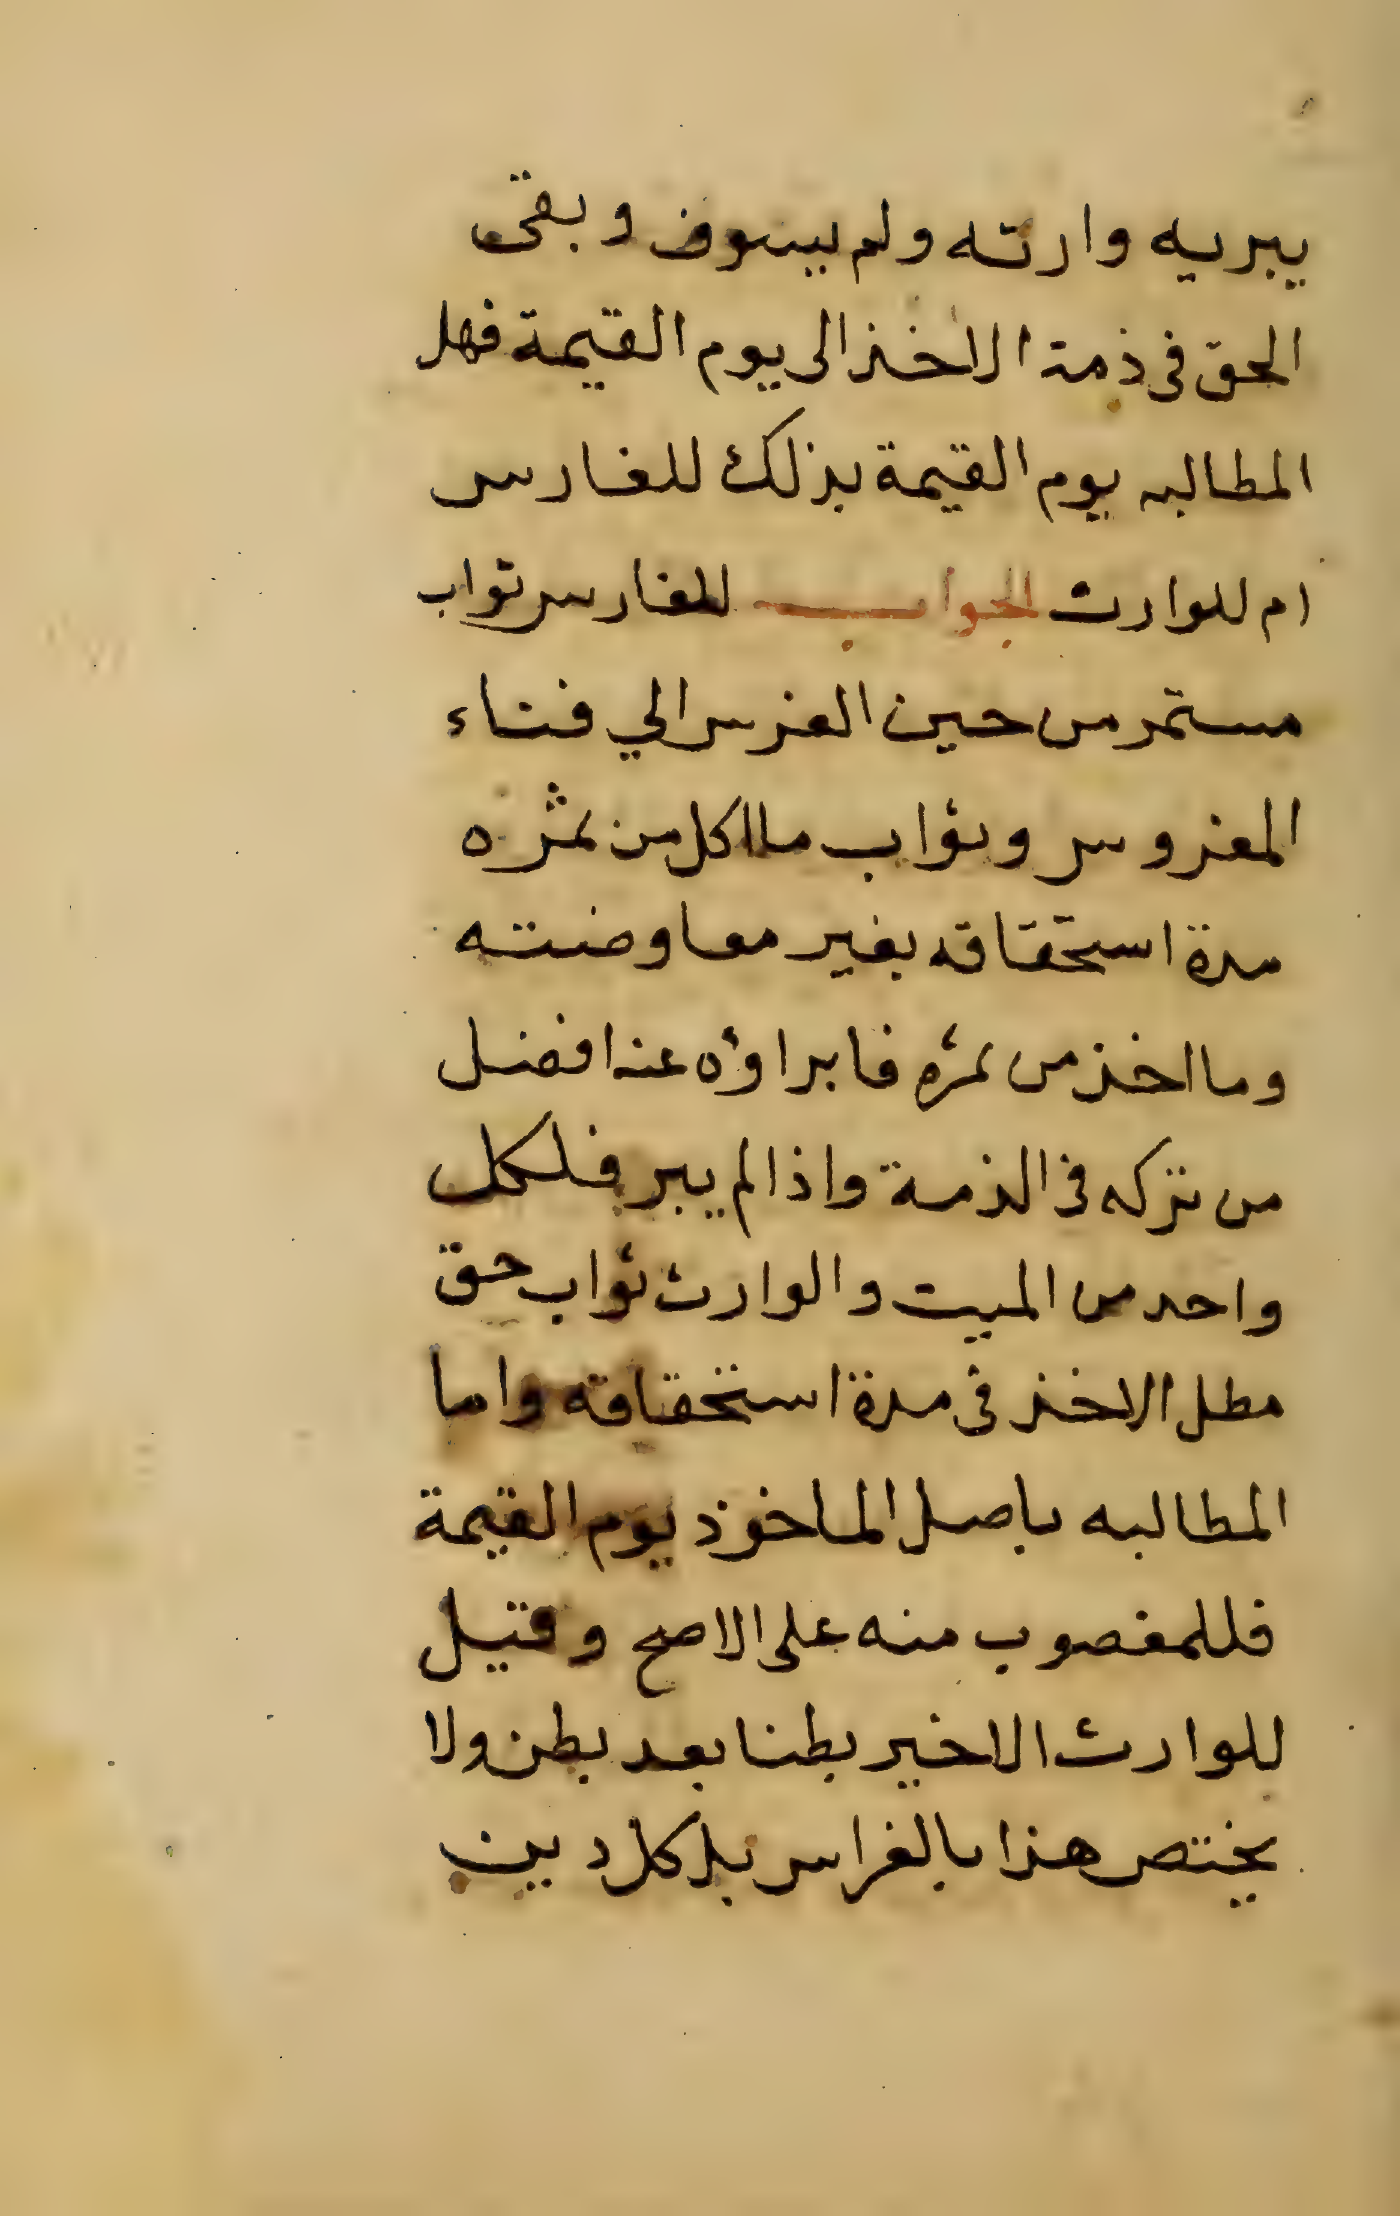 يبريه وارثه ولم يسوف وبقى
الحق فى ذمة الاخذ الى يوم القيمة فهل
المطالبه يوم القيمة بذلك للغارس
ام للوارث الجواب للغارس ثواب
مستمر من حين الغرس الي فناء
المغروس وثواب ما اكل من ثمره
مدة استحقاقه بغير معاوضته
وما اخذ من ثمره فابراؤه عنه افضل
من تركه فى الذمة واذا لم يبر فلكل
واحد من الميت والوارث ثواب حق
مطل الاخذ فى مدة استحقاقه واما
المطالبه باصل الماخوذ يوم القيمة
فللمغصوب منه على الاصح وقيل
للوارث الاخير بطنا بعد بطن ولا
يختص هذا بالغراس بل كل دين